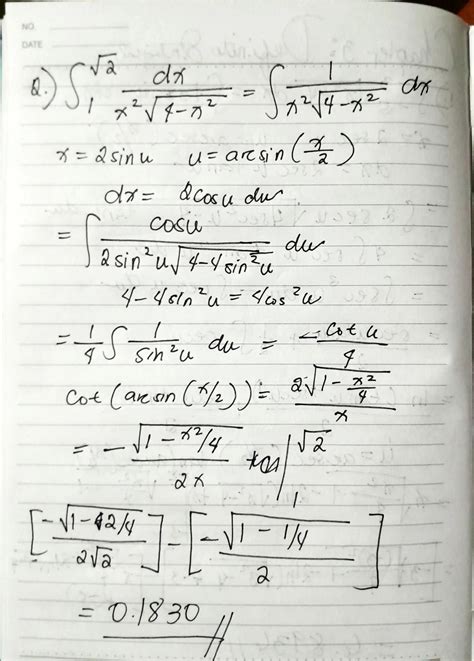 NO.
DATE
2.) ∫₁^√2 dx / x²√(4-x²) = ∫ 1 / x²√(4-x²) dx
x = 2sinu   u = arcsin(x/2)
dx = 2cosu du
= ∫ cosu / 2sin²u√(4-4sin²u) du
4-4sin²u = 4cos²u
= 1/4 ∫ 1/sin²u du = -cot u / 4
cot(arcsin(x/2)) = 2√(1 - x²/4) / x
= -√(1-x²/4) / 2x |₁^√2
[-√(1-2/4) / 2√2] - [-√(1-1/4) / 2]
= 0.1830 //